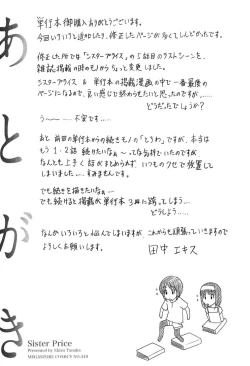 あとがき
単行本御購入ありがとうございます。
今回いろいろと追加したり、修正したページが多くてしんどかったです。
修正した所では「シスタープライス」の5話目のラストシーンを、
雑誌掲載の時のモノからちょっと変更しました。
シスタープライス & 単行本の掲載漫画の中で一番最後の
ページになるので、良い感じで終わらせたいと思ったのですが……
どうだったでしょうか?
う〜〜 …不安です…
あと、前回の単行本からの続きモノの「とらわ」ですが、本当は
もう1・2話続けたいなぁ〜ってな気持ちでいたのですが、
なんとも上手く話がまとめられず、いつものクセで放置して
しまいました……すみませんです。
でも続きを描きたいなぁ…
でも続けると掲載が単行本3冊に跨ってしまう…
どうしよう……
なんかいろいろと悩んでしまいますが、これからも頑張っていきますので
よろしくお願いします。
田中エキス
Sister Price
Presented by Ekisu Tanaka
MEGASTORE COMICS No.449